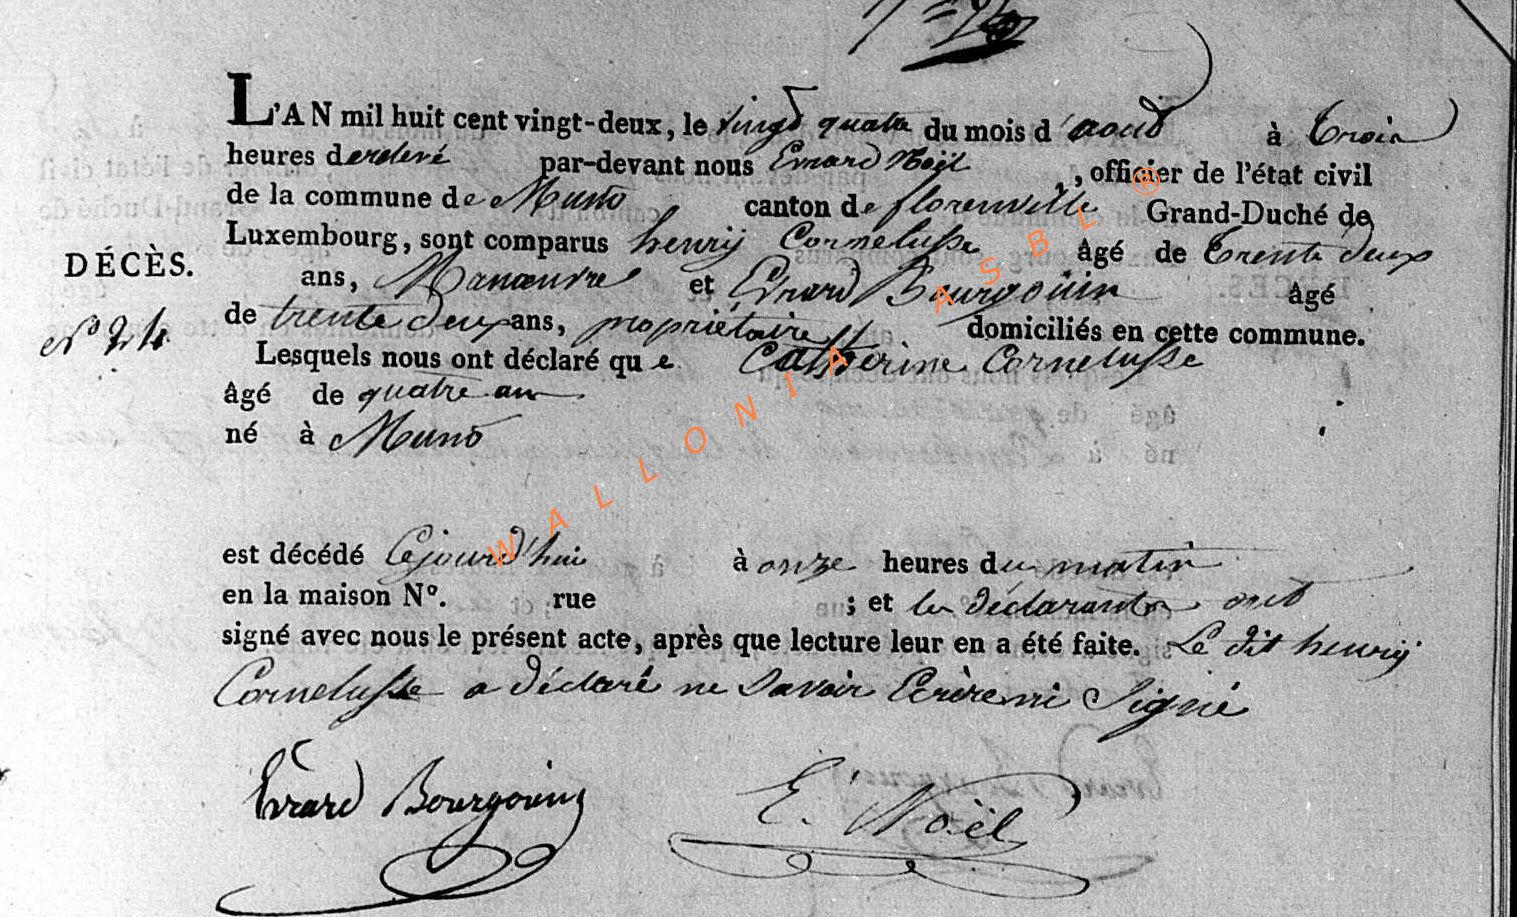 L'AN mil huit cent vingt-deux, le vingt quatre du mois d'aout à trois
heures derelevé par-devant nous Evrard Noël, officier de l'état civil
de la commune de Muno canton de florenville Grand-Duché de
Luxembourg, sont comparus henry Cornelusse âgé de trente deux
DÉCÈS.
ans, Manœuvre et Evrard Bourgouin âgé
N° 24.
de trente deux ans, propriétaire domiciliés en cette commune.
Lesquels nous ont déclaré que Catherine Cornelusse
âgé de quatre ans
né à Muno
est décédé Cejourd'hui à onze heures du matin
en la maison N°. rue ; et les déclarants ont
signé avec nous le présent acte, après que lecture leur en a été faite. Le dit henry
Cornelusse a déclaré ne savoir Ecrire ni Signé
Evrard Bourgouin E. Noël
WALLONIA ASBL ®